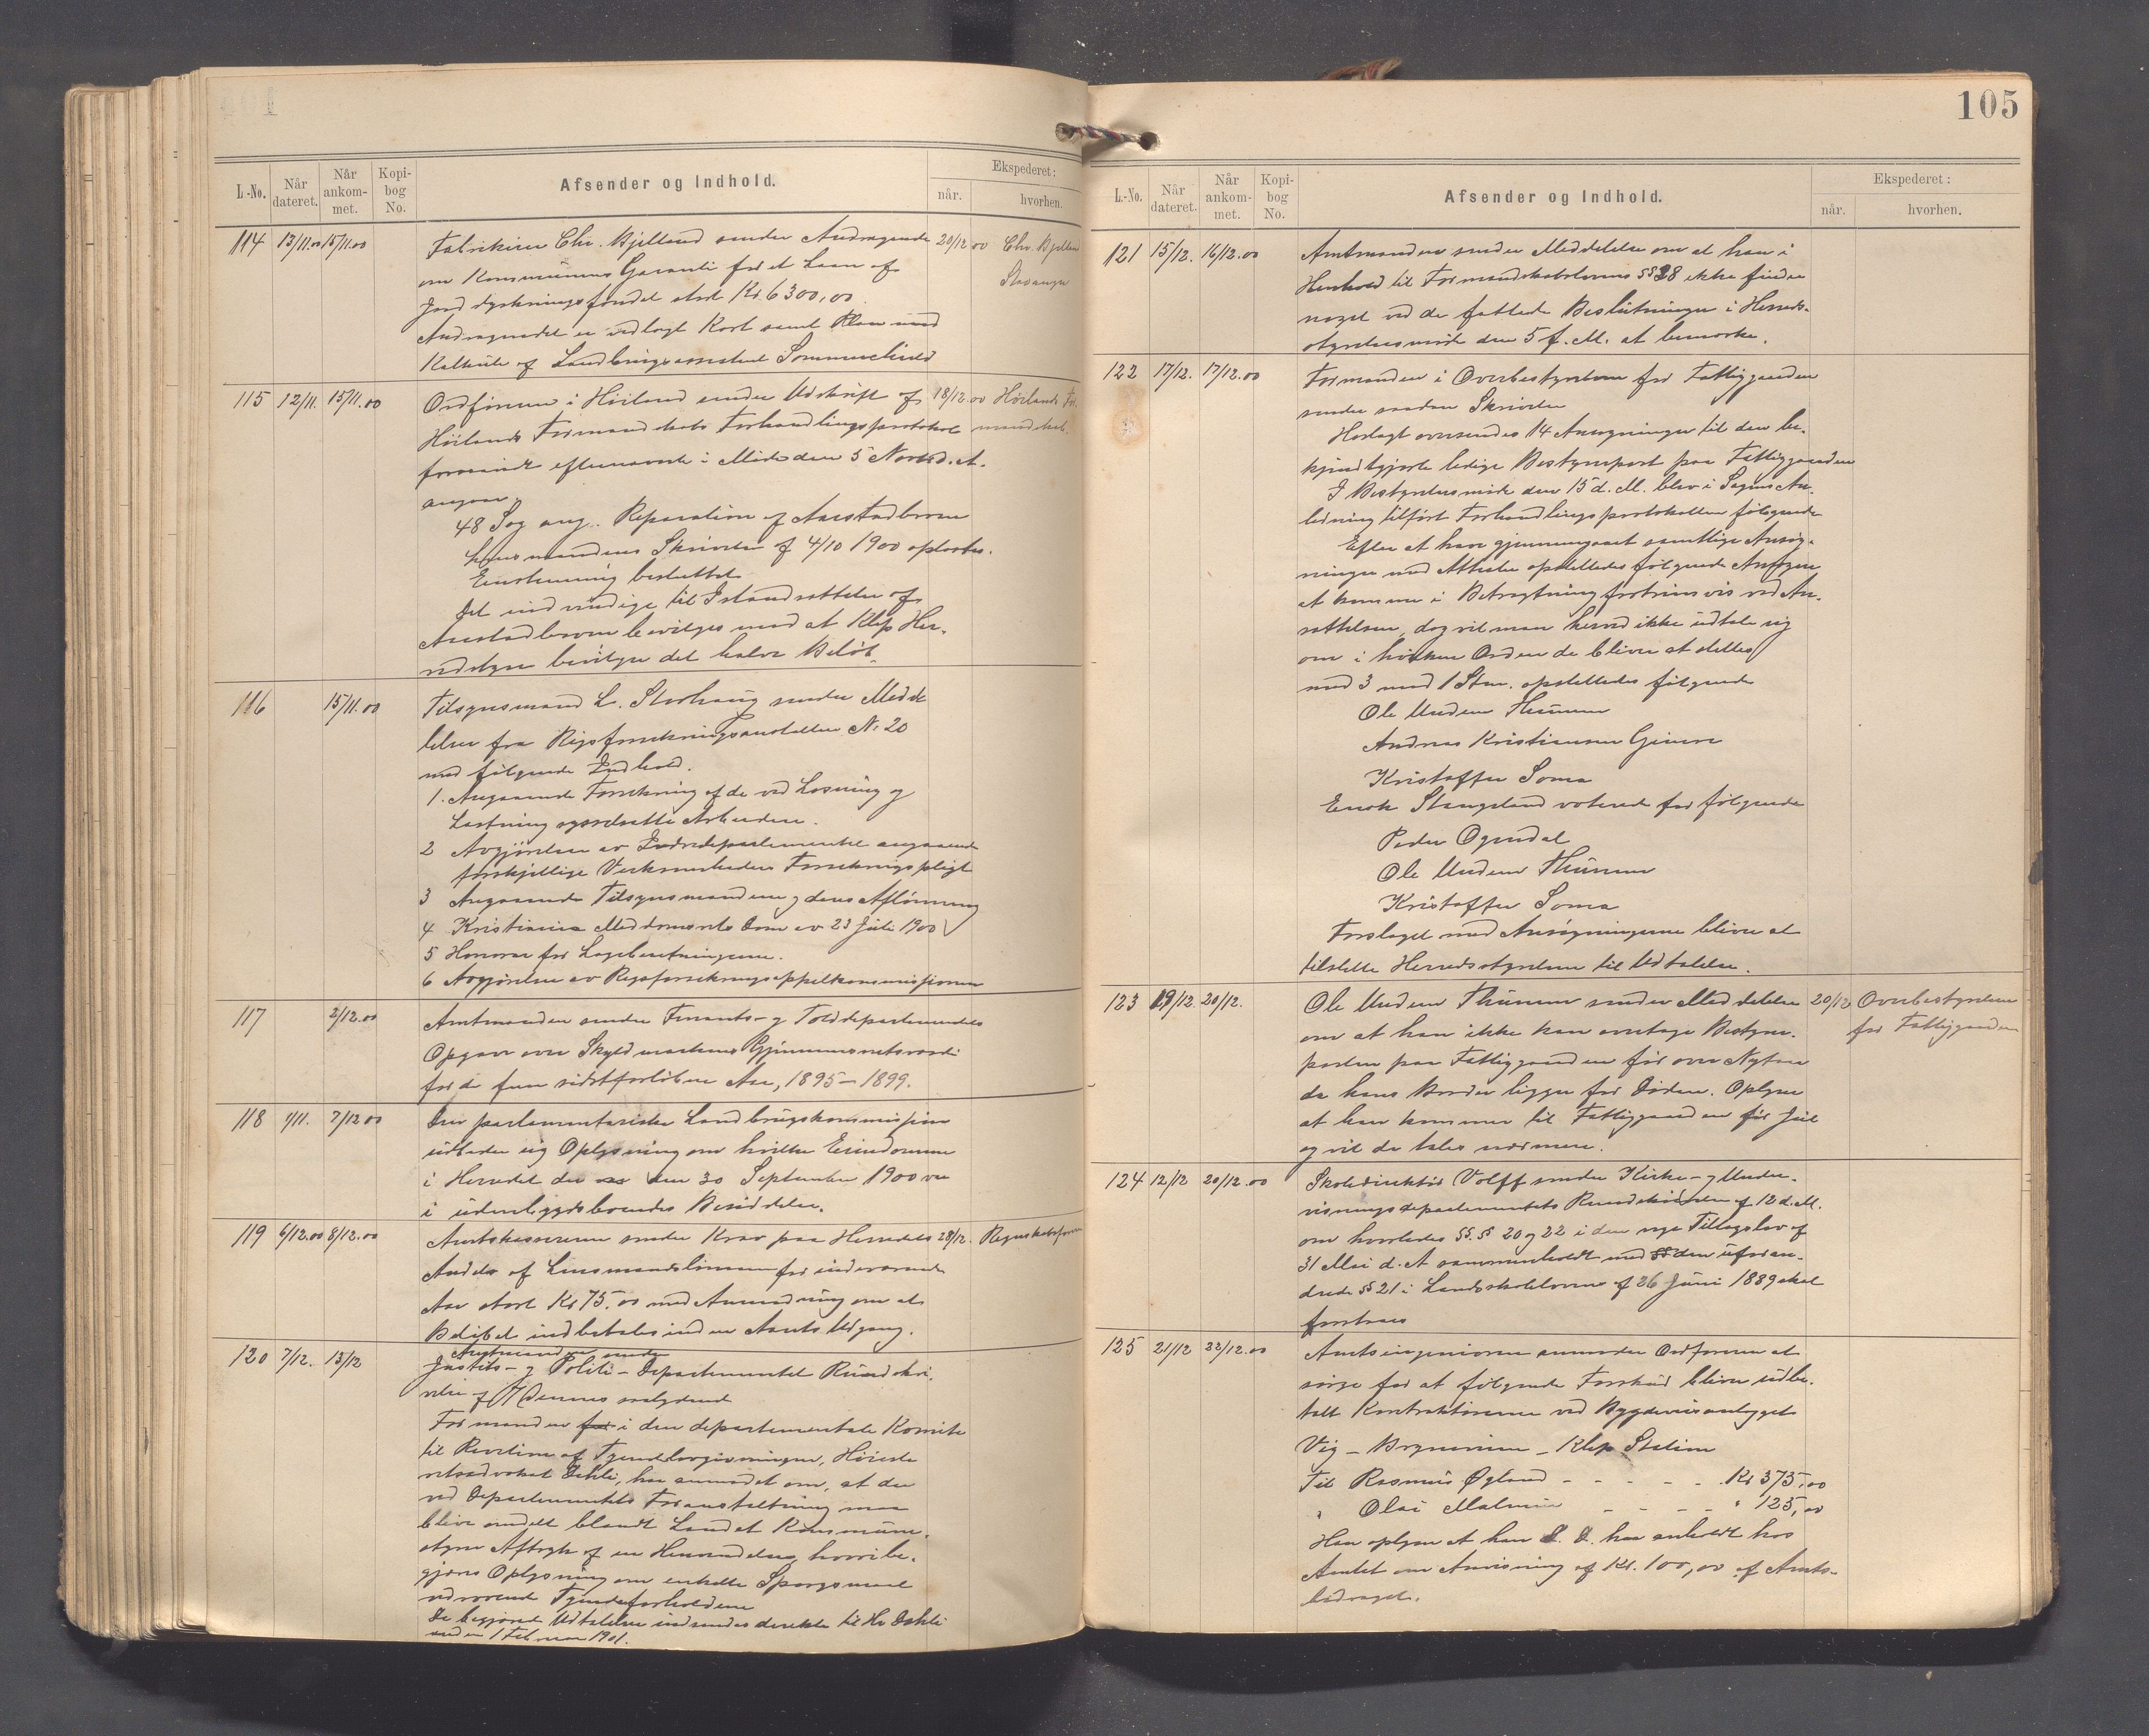 L.-No. Når dateret. Når ankom-met. Kopi-bog No. Afsender og Indhold. Ekspederet: når. hvorhen.
114 13/11.00 15/11.00 Fabrikeier Chr. Bjelland sender Andragende 20/12 00 Chr. Bjelland
om Kommunens Garanti for et Laan af Stavanger
Jorddyrkningsfondet stort Kr. 6300,00.
Andragendet er vedlagt Kort samt Plan med
Kalkule af Landbrugsassistent Sommerschield
115 12/11. 15/11.00 Ordføreren i Høiland sender Udskrift af 18/12.00 Høilands For-
Høilands Formandskabs Forhandlingsprotokol mandskab.
foranvendt efternævnte i Møde den 5 Novbr d. A.
angaar
48 Sag ang. Reparation af Aarstadbroen
Lensmandens Skrivelse af 4/10 1900 oplæstes.
Enstemmig besluttet
Det nødvendige til Istandsættelse af
Aarstadbroen bevilges mod at Klep Her-
redstyre bevilger det halve Beløb
116 15/11.00 Tilsynsmand L. Storhaug sender Medde
lelser fra Rigsforsikringsanstalten No 20
med følgende Indhold.
1. Angaaende Forsikring af de ved Losning og
Lastning sysselsatte Arbeidere.
2 Avgjørelser av Indredepartementet angaaende
forskjellige Verksomheders Forsikringspligt
3 Angaaende Tilsynsmændene og deres Aflønning
4 Kristiania Meddomsrets Dom av 23 Juli 1900
5 Honorar for Lægeberetningerne.
6 Avgjørelser av Rigsforsikringsappelkommissionen
117 2/12.00 Amtmanden sender Finants- og Tolddepartementets
Opgave over Skyldmarkens Gjennemsnitsværdi
for de fem sidstforløbne Aar, 1895–1899.
118 1/11. 7/12 00 Den parlamentariske Landbrugskommission
udbeder sig Oplysning om hvilke Eiendomme
i Herredet der den 30 September 1900 var
i udenbygdsboendes Besiddelse.
119 6/12.00 8/12.00 Amtskassereren sender Krav paa Herredets 28/12. Regnskabsføreren
Andel af Lensmandslønnen for indeværende
Aar stort Kr 75.00 med Anmodning om at
Beløbet indbetales inden Aarets Udgang.
120 7/12. 13/12 Amtmanden sender
Justits- og Politi-Departementet Rundskri-
velse af 7 dennes saalydende
Formanden for i den departementale Komite
til Revision af Tyendelovgivningen, Høieste
retsadvokat Dahli, har anmodet om, at der
ved Departementets Foranstaltning maa
blive omdelt blandt Landets Kommune-
styrer Aftryk af en Henvendelse, hvori be-
gjæres Oplysning om enkelte Spørgsmaal
vedrørende Tyendeforholdene
De begjærede Udtalelser indsendes direkte til Hr Dahli
inden 1 Februar 1901.
105
L.-No. Når dateret. Når ankom-met. Kopi-bog No. Afsender og Indhold. Ekspederet: når. hvorhen.
121 15/12. 16/12.00 Amtmanden sender Meddelelse om at han i
Henhold til Formandskabslovens §§ 38 ikke finder
noget ved de fattede Beslutninger i Herreds-
styrelsesmøde den 5 f. M. at bemærke.
122 17/12. 17/12.00 Formanden i Overbestyrelsen for Fattiggaarden
sender saadan Skrivelse
Hoslagt oversendes 14 Ansøgninger til den be-
kjendtgjorte ledige Bestyrerpost paa Fattiggaarden
I Bestyrelsesmøde den 15 d. M. blev i Sagens An-
ledning tilført Forhandlingsprotokollen følgende
Efter at have gjennemgaaet samtlige Ansøg-
ninger med Attester opstilledes følgende Ansøgere
at komme i Betragtning fortrinsvis ved An-
sættelsen, dog vil man herved ikke udtale sig
om i hvilken Orden de bliver at stilles
med 3 mod 1 Stem. opstilledes følgende
Ole Undem Thunem
Andreas Kristiansen Giverø
Kristoffer Soma
Enok Stangeland voterede for følgende
Peder Ogndal
Ole Undem Thunem
Kristoffer Soma
Forslaget med Ansøgningerne bliver at
tilstille Herredsstyrelsen til Udtalelse.
123 19/12. 20/12. Ole Undem Thunem sender Meddelelse 20/12 Overbestyrelsen
om at han ikke kan overtage Bestyrer- for Fattiggaarden
posten paa Fattiggaarden før over Nytaar
da hans Broder ligger for Døden. Oplyser
at han kommer til Fattiggaarden før Jul
og vil da tales nærmere.
124 12/12 20/12.00 Skoledirektør Volff sender Kirke- og Under-
visningsdepartementets Rundskrivelse af 12 d. M.
om hvorledes §§.§ 20 og 22 i den nye Tillægslov af
31 Mai d. A sammenholdt med §§ den uforan-
drede § 21 i Landsskoleloven af 26 Juni 1889 skal
forstaaes
125 21/12 22/12.00 Amtsingeniøren anmoder Ordføreren at
sørge for at følgende Forskud bliver udbe-
talt Kontraktørerne ved Bygdeveisanlægget
Vig – Bryneveien – Klep Station
Til Rasmus Øgland - - - - - Kr 373,00
" Olai Malmin - - - - " 125,00
Han oplyser at han S. D. har anholdt hos
Amtet om Anvisning af Kr. 100,00 af Amts-
bidraget.